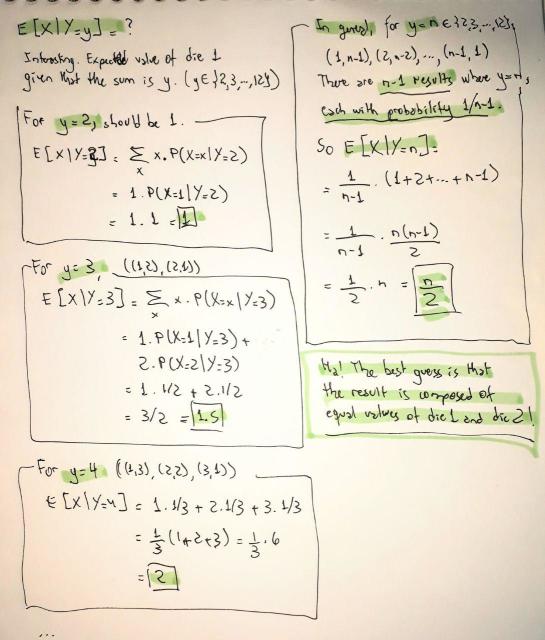 E[X|Y=y] = ?
Interesting. Expected value of die 1
given that the sum is y. (y∈{2,3,...,12})
For y=2, should be 1.
E[X|Y=2] = Σ x.P(X=x|Y=2)
x
= 1.P(X=1|Y=2)
= 1.1 = 1
For y=3, ((1,2),(2,1))
E[X|Y=3] = Σ x.P(X=x|Y=3)
x
= 1.P(X=1|Y=3) +
2.P(X=2|Y=3)
= 1.1/2 + 2.1/2
= 3/2 = 1.5
For y=4 ((1,3),(2,2),(3,1))
E[X|Y=4] = 1.1/3 + 2.1/3 + 3.1/3
= 1/3 (1+2+3) = 1/3 . 6
= 2
...
In general, for y=n∈{2,3,...,12},
(1,n-1),(2,n-2),...,(n-1,1)
There are n-1 results where y=n,
each with probability 1/n-1.
So E[X|Y=n] =
= 1/n-1 . (1+2+...+n-1)
= 1/n-1 . n(n-1)/2
= 1/2 . n = n/2
Ha! The best guess is that
the result is composed of
equal values of die 1 and die 2!